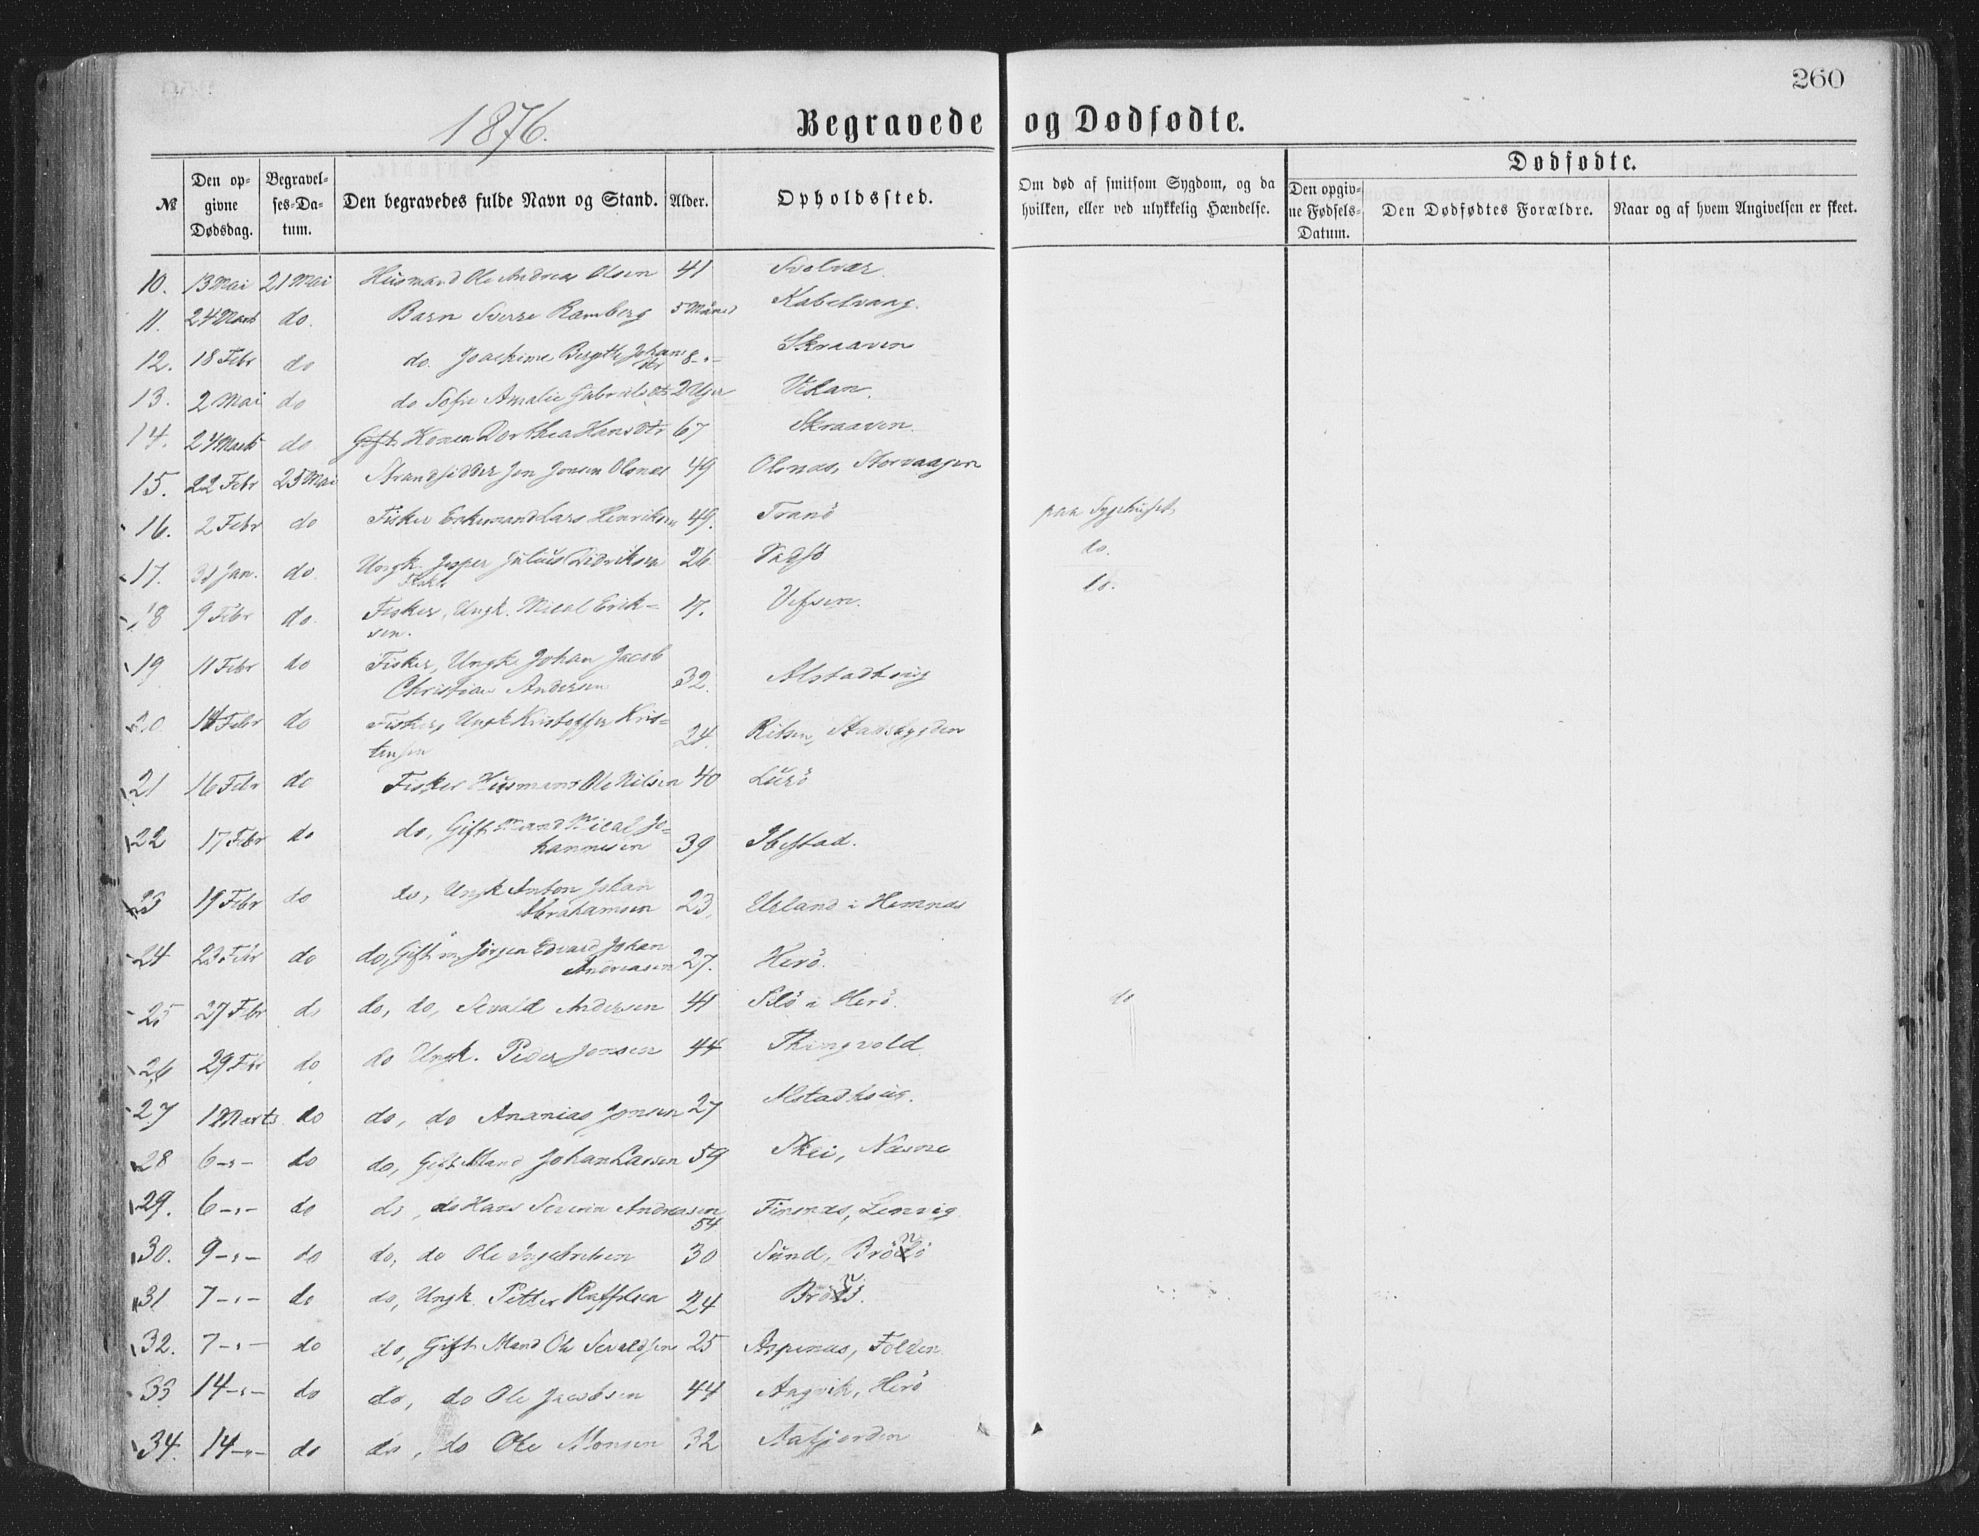 260
1876.
Begravede og Dødfødte.
Dødfødte.
№ Den opgivne Dødsdag. Begravelses-Datum. Den begravedes fulde Navn og Stand. Alder. Opholdssted. Om død af smitsom Sygdom, og da hvilken, eller ved ulykkelig Hændelse. Den opgivne Fødsels-Datum. Den Dødfødtes Forældre. Naar og af hvem Angivelsen er skeet.
10. 13 Mai 21 Mai Husmand Ole Andreas Olsen 41 Svolvær.
11. 24 Marts do. Barn Sverre Ramberg 5 Måned Kabelvaag.
12. 18 Febr do do. Joachime Birgithe Johansdtr 8 -"- Skraaven
13. 2 Mai do do Sofie Amalie Gabrielsdtr 2 Uger Vikan.
14. 24 Marts do. Gift. Konen Dorthea Hansdtr 67 Skraaven.
15. 22 Febr 25 Mai Strandsidder Jon Jonsen Olsnæs 49 Olsnæs, Storvaagen
16. 2 Febr do Fisker Enkemand Lars Henriksen 49. Tranö paa Sygehuset
17. 31 Jan. do. Ungk. Jesper Julius Didriksen 26 Vadsö do.
18 9 Febr do. Fisker, Ungk. Mical Erik-
sen. 17. Vefsen. do.
19 11 Febr do Fisker, Ungk. Johan Jacob
Christian Andersen 32. Alstadhoug
20 14 Febr do Fisker, Ungk Kristoffer Kris-
tensen 24. Ritsen, Stadsbygden
21 16 Febr do Fisker Husmand Ole Nilsen 40 Lurö
22 17 Febr do do, Gift Mand Mical Jo-
hannesen 39 Ibestad.
23 19 Febr do do, Ungk Anton Johan
Abrahamsen 23. Urland i Hemnæs
24 23 Febr do do, Gift m. Jörgen Edvard Johan
Andreasen 27. Herö.
25 27 Febr do do, do, Sevald Andersen 41 i Herö. do
26 29 Febr do do Ungk. Peder Jonsen 44 Thingvold
27 1 Marts do do, do Ananias Jensen 27 Alstadhoug.
28 6 -"- do do, Gift Mand Johan Larsen 59 Skei, Næsne
29. 6 -"- do do, do Hans Severin Andreasen 54 Finsnæs, Lenvig
30. 9 -"- do do, do Ole Ingebretsen 30 Sund, Brönö
31 7 -"- do do, Ungk. Petter Raffelsen 24 Brönö.
32. 7 -"- do do, Gift Mand Ole Sevaldsen 25 Aspenæs, Folden
33 14 -"- do do, do Ole Jacobsen 44 Angvik, Herö
34. 14 -"- do do, do Ole Monsen 32 Aafjorden